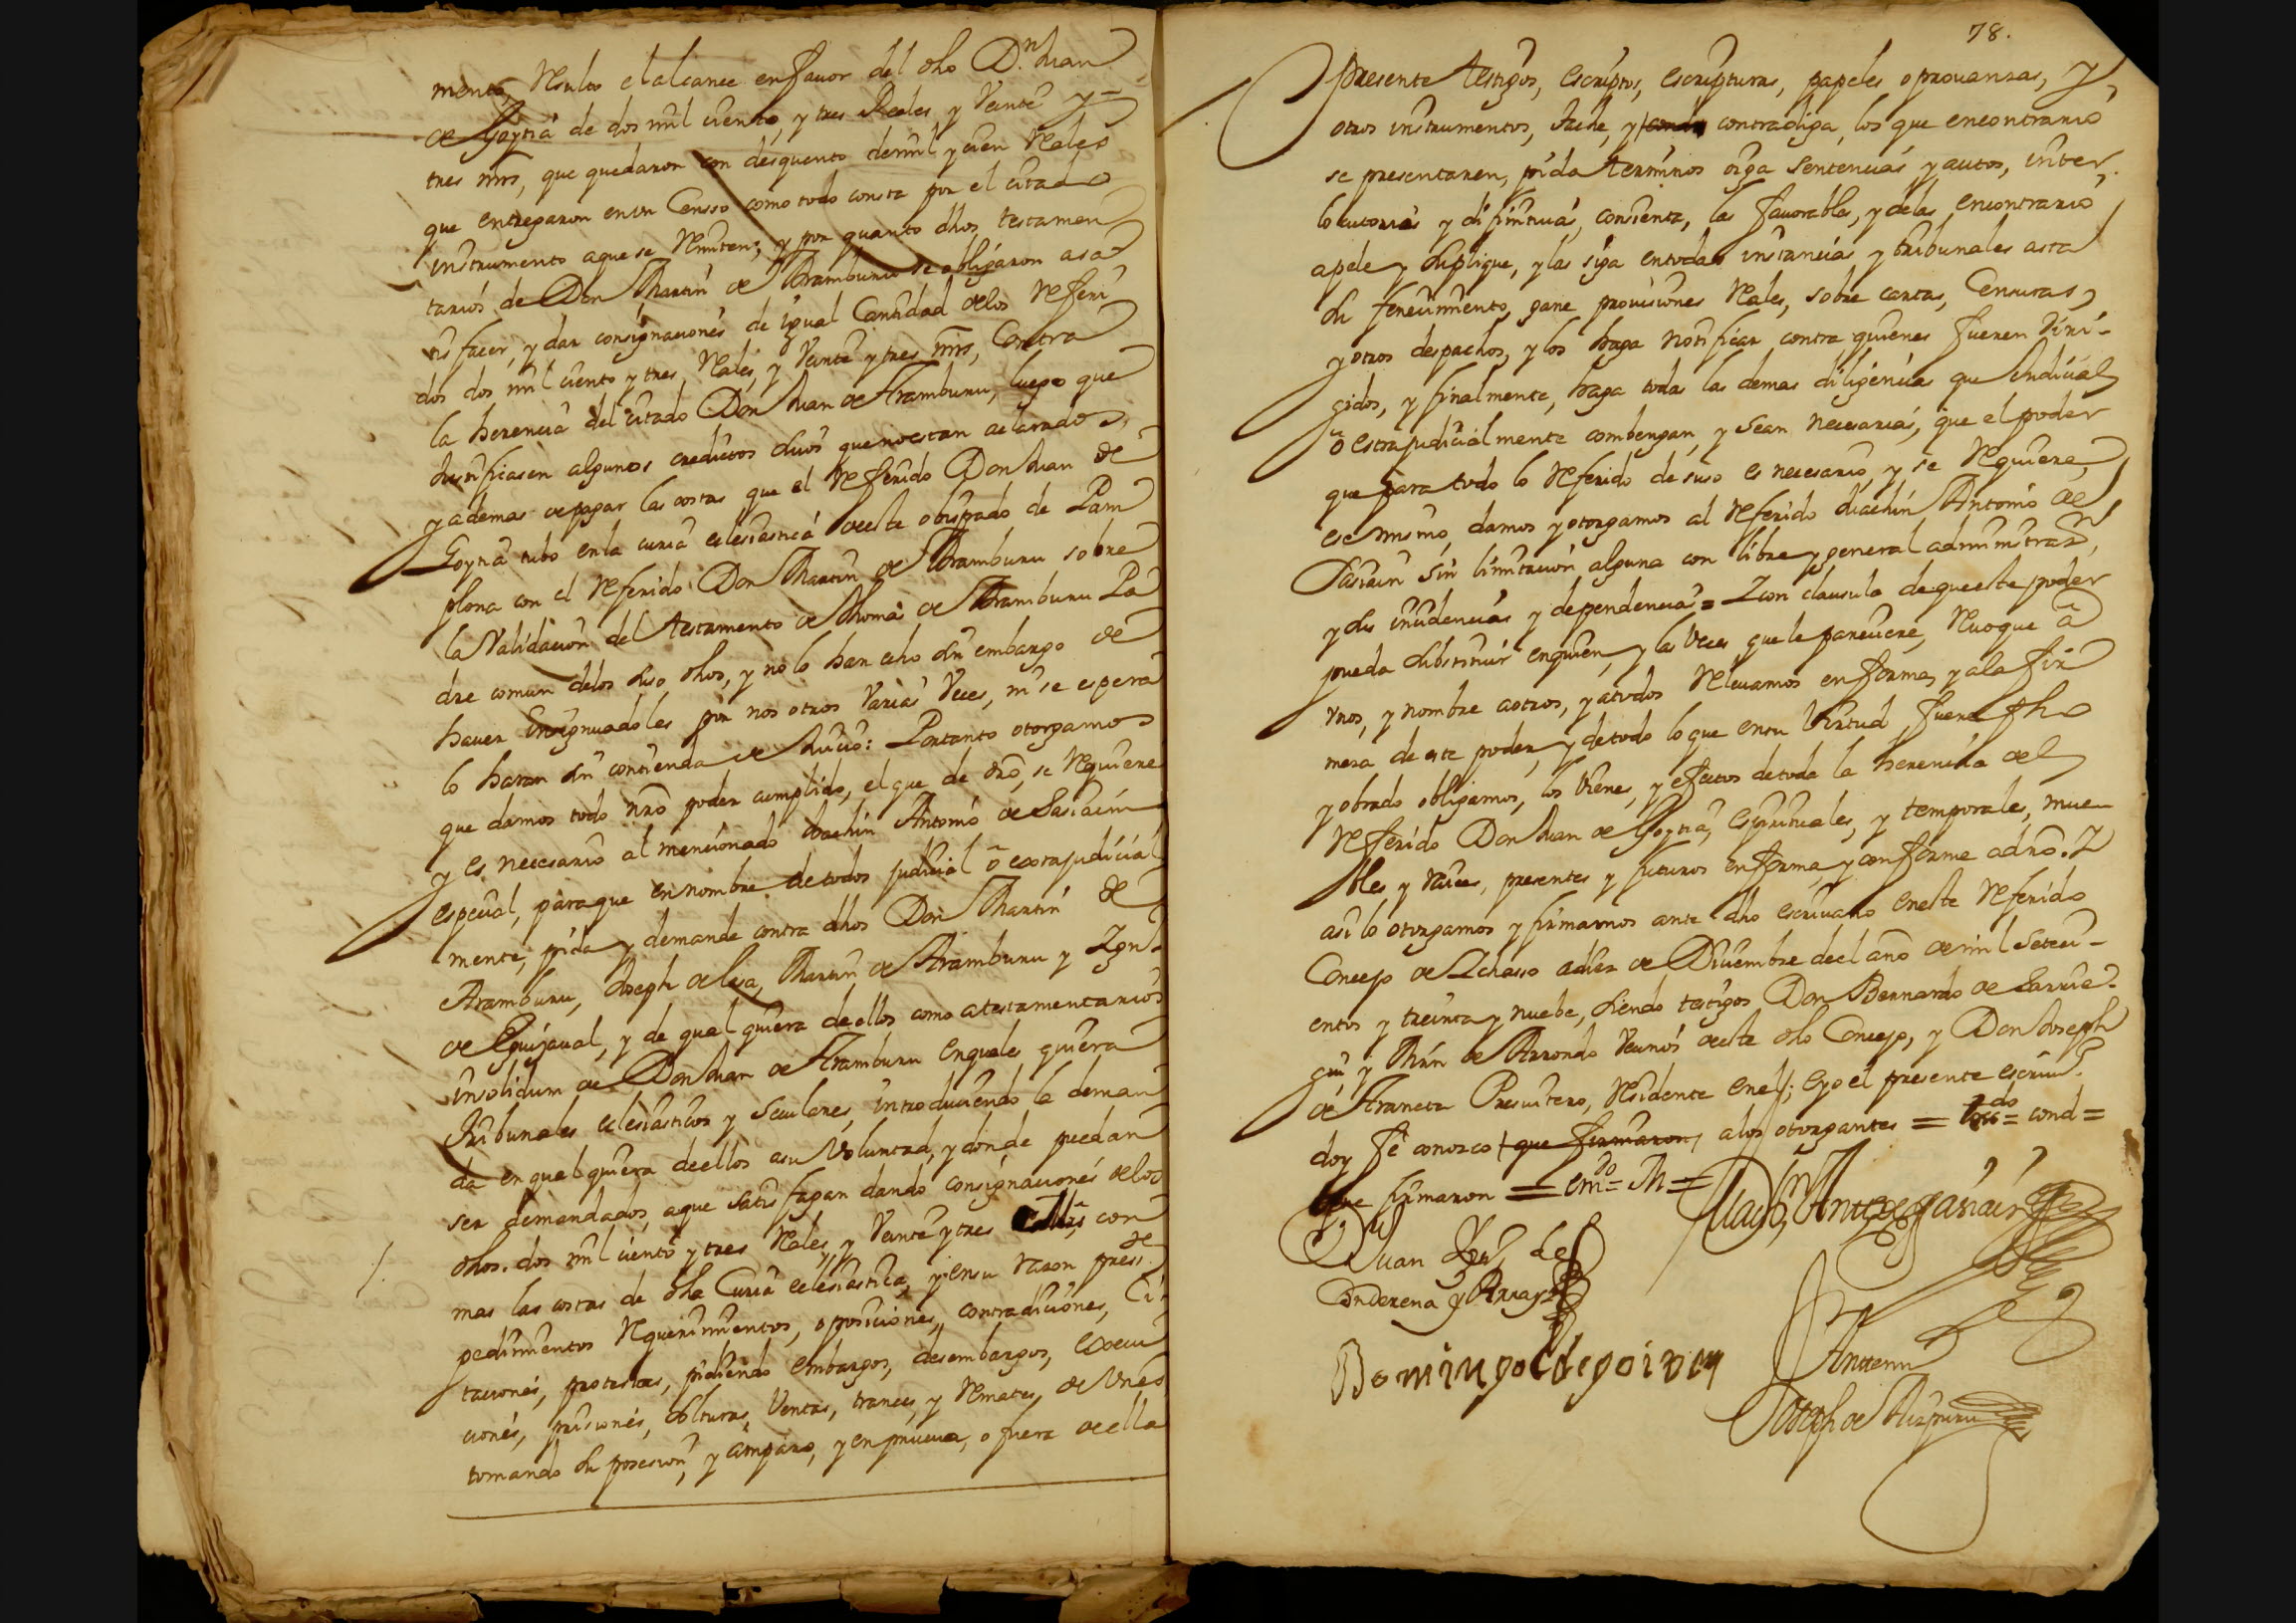 mento, Resulto el alcance en favor del dho D.n Juan
de Goytia de dos mil ciento, y tres Reales y Veinte y
tres mrs, que quedaron con desquento de mil y cien Reales
que entregaron en un Censso como todo consta por el citado
instrumento a que se Remiten; y por quanto dhos testamen
tarios de Don Martin de Aramburu se obligaron a sa
tis facer, y dar consignaciones de igual Cantidad de los Referi
dos dos mil ciento y tres Reales, y Veinte y tres mrs, Contra
la herencia del citado Don Juan de Aramburu, luego que
Justificasen algunos creditos suios que no estan aclarados,
y ademas de pagar las costas que el Referido Don Juan de
Goytia tubo en la curia eclesiastica de este obispado de Pam
plona con el Referido Don Martin de Aramburu sobre
la Validacion del testamento de Thomas de Aramburu Pa
dre comun de los suso dhos, y no lo han echo sin embargo de
haver insignuadoles por nos otros Varias Veces, ni se espera
lo haran sin contienda de Juicio: Portanto otorgamos
que damos todo nro poder cumplido, el que de dro, se Requiere
y es necesario al mencionado Joachin Antonio de Sasiain
especial, para que en nombre de todos judicial ô extrajudicial
mente, pida y demande contra dhos Don Martin de
Aramburu, Joseph de Lesa, Martin de Aramburu y Ign.o
de Eguizaval, y de qual quiera de ellos como a testamentarios
insolidum de Don Juan de Aramburu en quales quiera
Tribunales eclesiasticos y Seculares, introduciendo la deman
da en qual quiera de ellos a su Voluntad, y donde puedan
ser demandados, a que satis fagan dando consignaciones de los
dhos. dos mil ciento y tres Reales, y Veinte y tres con
mas las costas de dha Curia eclesiastica, y en su razon presi.de
pedimientos Requerimientos, oposiciones, contradiciones, Ci
taciones, protestas, pidiendo embargos, desembargos, execu
ciones, prisiones, solturas, Ventas, trances, y Remates, de Vienes
tomando su posesion, y amparo, y en prueva, o fuera de ella
78.
presente testigos, escriptos, escripturas, papeles o provanzas, y
otros instrumentos, tache, y contradiga, los que en contrario
se presentaren, pida terminos oiga sentencias y autos, inter
locutorias y difinitivas, consienta, las favorables, y de las en contrario
apele y suplique, y las siga en todas instancias y tribunales asta
su fenecimiento, gane provisiones Reales, sobre cartas, Censuras,
y otros despachos, y los haga notificar contra quienes fueren diri-
gidos, y finalmente, haga todas las demas diligencias que Judicial
ô estrajudicialmente combengan, y sean necesarias, que el poder
que para todo lo Referido de suso es necesario, y se Requiere,
ese mismo, damos y otorgamos al Referido Joachin Antonio de
Sasiain sin limitacion alguna con libre y general administraz.n,
y sus incidencias y dependencias = Y con clausula de que este poder
pueda substituir en quien, y las Veces que le pareciere, Revoque â
unos, y nombre a otros, y a todos Relevamos en forma, y a la fir
meza de este poder, y de todo lo que en su Virtud, fuere fho
y obrado obligamos, los Vienes, y efectos de toda la herencia del
Referido Don Juan de Goytia, espirituales, y temporales, mue
bles y raices, presentes y futuros en forma, y conforme a dro. Y
asi lo otorgamos y firmamos ante dho escrivano en este Referido
Concejo de Ichasso a diez de Diciembre de el año de mil setec-
entos y treinta y nuebe, siendo testigos Don Bernardo de Larrie-
gui, y Mrn de Arrondo Vecinos de este dho Concejo, y Don Joseph
de Araneta Presvitero, Residente en el; e yo el presente escriv.o
doy fe conozco que firmaron, a los otorgantes = do = cond =
que firmaron = em.do = M =
Juachin Antt.o de Sasiain
Juan Ign.o de
Conderena y Array
Domingo de goitia
Antemi
Joseph de Aizpuru